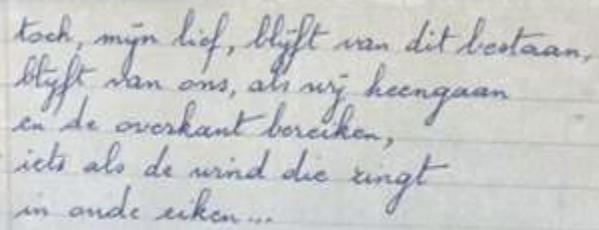 toch, mijn lief, blijft van dit bestaan,
blijft van ons, als wij heengaan
en de overkant bereiken,
iets als de wind die zingt
in oude eiken...